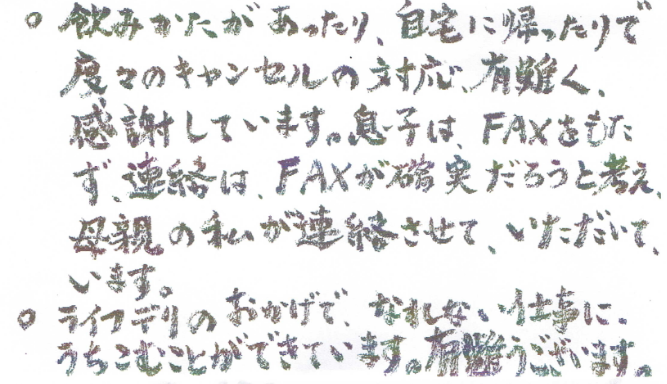 ○ 飲みかたがあったり、自宅に帰ったりで
度々のキャンセルの対応、有難く、
感謝しています。息子は、FAXをもた
ず、連絡は、FAXが確実だろうと考え、
母親の私が連絡させて、いただいて、
います。
○ ライフデリのおかげで、なれない仕事に、
うちこむことができています。有難うございます。